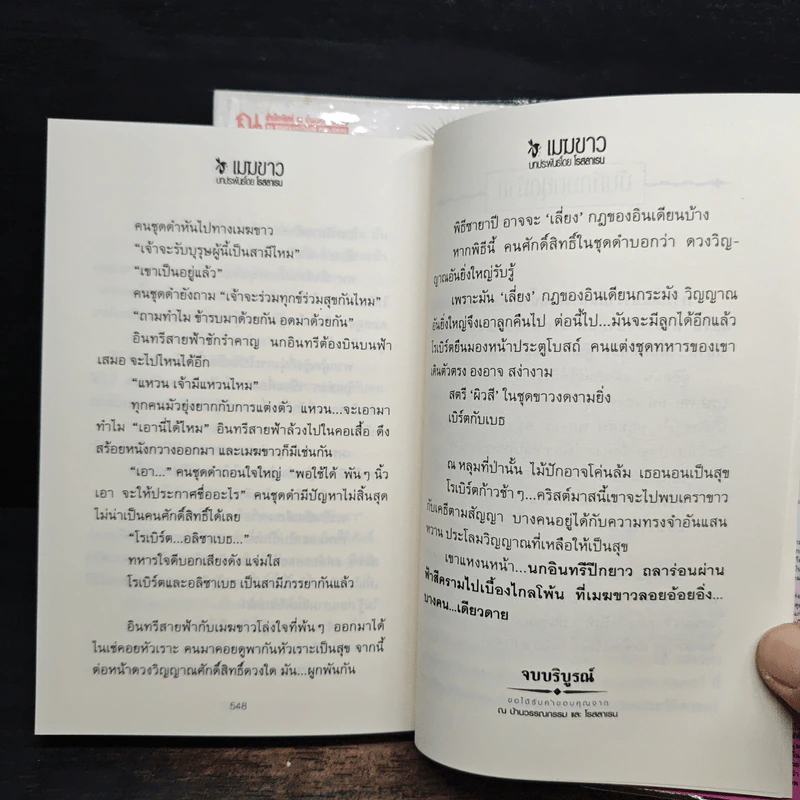 ณ
เมฆขาว
บทประพันธ์โดย โรสลาเรน
คนชุดดำหันไปทางเมฆขาว
“เจ้าจะรับบุรุษผู้นี้เป็นสามีไหม”
“เขาเป็นอยู่แล้ว”
คนชุดดำยังถาม “เจ้าจะร่วมทุกข์ร่วมสุขกันไหม”
“ถามทำไม ข้ารบมาด้วยกัน อดมาด้วยกัน”
อินทรีสายฟ้าชักรำคาญ นกอินทรีต้องบินบนฟ้า
เสมอ จะไปไหนได้อีก
“แหวน เจ้ามีแหวนไหม”
ทุกคนมัวยุ่งยากกับการแต่งตัว แหวน...จะเอามา
ทำไม “เอานี่ได้ไหม” อินทรีสายฟ้าล้วงไปในคอเสื้อ ดึง
สร้อยหนังกวางออกมา และเมฆขาวก็มีเช่นกัน
“เอา...” คนชุดดำถอนใจใหญ่ “พอใช้ได้ พันๆ นิ้ว
เอา จะให้ประกาศชื่ออะไร” คนชุดดำมีปัญหาไม่สิ้นสุด
ไม่น่าเป็นคนศักดิ์สิทธิ์ได้เลย
“โรเบิร์ต...อลิซาเบธ...”
ทหารใจดีบอกเสียงดัง แจ่มใส
โรเบิร์ตและอลิซาเบธ เป็นสามีภรรยากันแล้ว
อินทรีสายฟ้ากับเมฆขาวโล่งใจที่พ้นๆ ออกมาได้
ไนเช่คอยหัวเราะ คนมาคอยดูพากันหัวเราะเป็นสุข จากนี้
ต่อหน้าดวงวิญญาณศักดิ์สิทธิ์ดวงใด มัน...ผูกพันกัน
548
เมฆขาว
บทประพันธ์โดย โรสลาเรน
พิธีซายาปี อาจจะ ‘เลี่ยง’ กฎของอินเดียนบ้าง
หากพิธีนี้ คนศักดิ์สิทธิ์ในชุดดำบอกว่า ดวงวิญ-
ญาณอันยิ่งใหญ่รับรู้
เพราะมัน ‘เลี่ยง’ กฎของอินเดียนกระมัง วิญญาณ
อันยิ่งใหญ่จึงเอาลูกคืนไป ต่อนี้ไป...มันจะมีลูกได้อีกแล้ว
โรเบิร์ตยืนมองหน้าประตูโบสถ์ คนแต่งชุดทหารของเขา
เดินตัวตรง องอาจ สง่างาม
สตรี ‘ผิวสี’ ในชุดขาวงดงามยิ่ง
เบิร์ตกับเบธ
ณ หลุมที่ป่านั้น ไม้ปักอาจโค่นล้ม เธอนอนเป็นสุข
โรเบิร์ตก้าวช้าๆ...คริสต์มาสนี้เขาจะไปพบเคราขาว
กับเคธี่ตามสัญญา บางคนอยู่ได้กับความทรงจำอันแสน
หวาน ประโลมวิญญาณที่เหลือให้เป็นสุข
เขาแหงนหน้า...นกอินทรีปีกยาว ถลาร่อนผ่าน
ฟ้าสีครามไปเบื้องไกลโพ้น ที่เมฆขาวลอยอ้อยอิ่ง...
บางคน...เดียวดาย
จบบริบูรณ์
ขอได้รับคำขอบคุณจาก
ณ บ้านวรรณกรรม และ โรสลาเรน